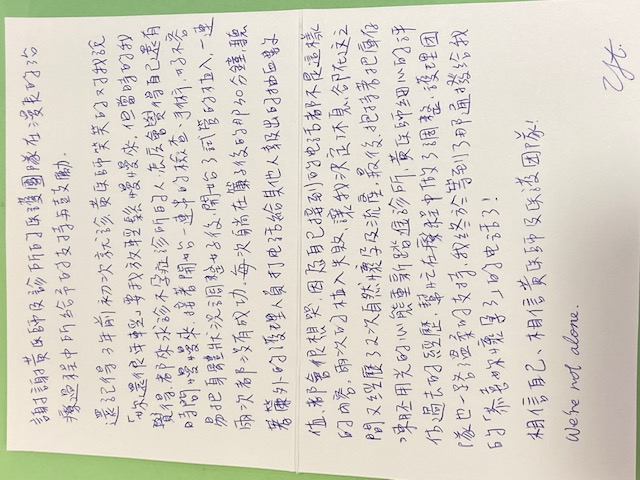 謝謝黃医師及診所的医護團隊在漫長的治
療過程中所給予的支持与鼓勵.
還記得3年前初次就診,黃医師笑笑的对我說
「妳還很年輕」要我放輕鬆慢慢來,但當時的我
覺得,都來求診不孕症診所的人,怎麼會覺得自己還有
時間慢慢來,接著開始一連串的檢查、手術,好不容
易把身體狀況調整好後,開始了試管的植入,一連
兩次都沒有成功,每次躺在簾子後的那30分鐘,聽
著簾外的護理人員打电話給其他人報出的抽血數
值,都會很想哭,因為自己接到的电話都不是這樣
的內容,兩次的植入失敗,讓我決定休息,卻在這之
間又經歷了2次自然懷孕及流產,最後,抱持著把庫存
凍胚用光的心態重新踏進診所,黃医師細心的評
估過去的經歷,幫忙在療程中做了調整,護理團
隊也一路溫柔的支持,我終於等到了那通撥給我
的「恭喜妳懷孕了」的电話了!
相信自己、相信黃医師及医護團隊!
We're not alone.